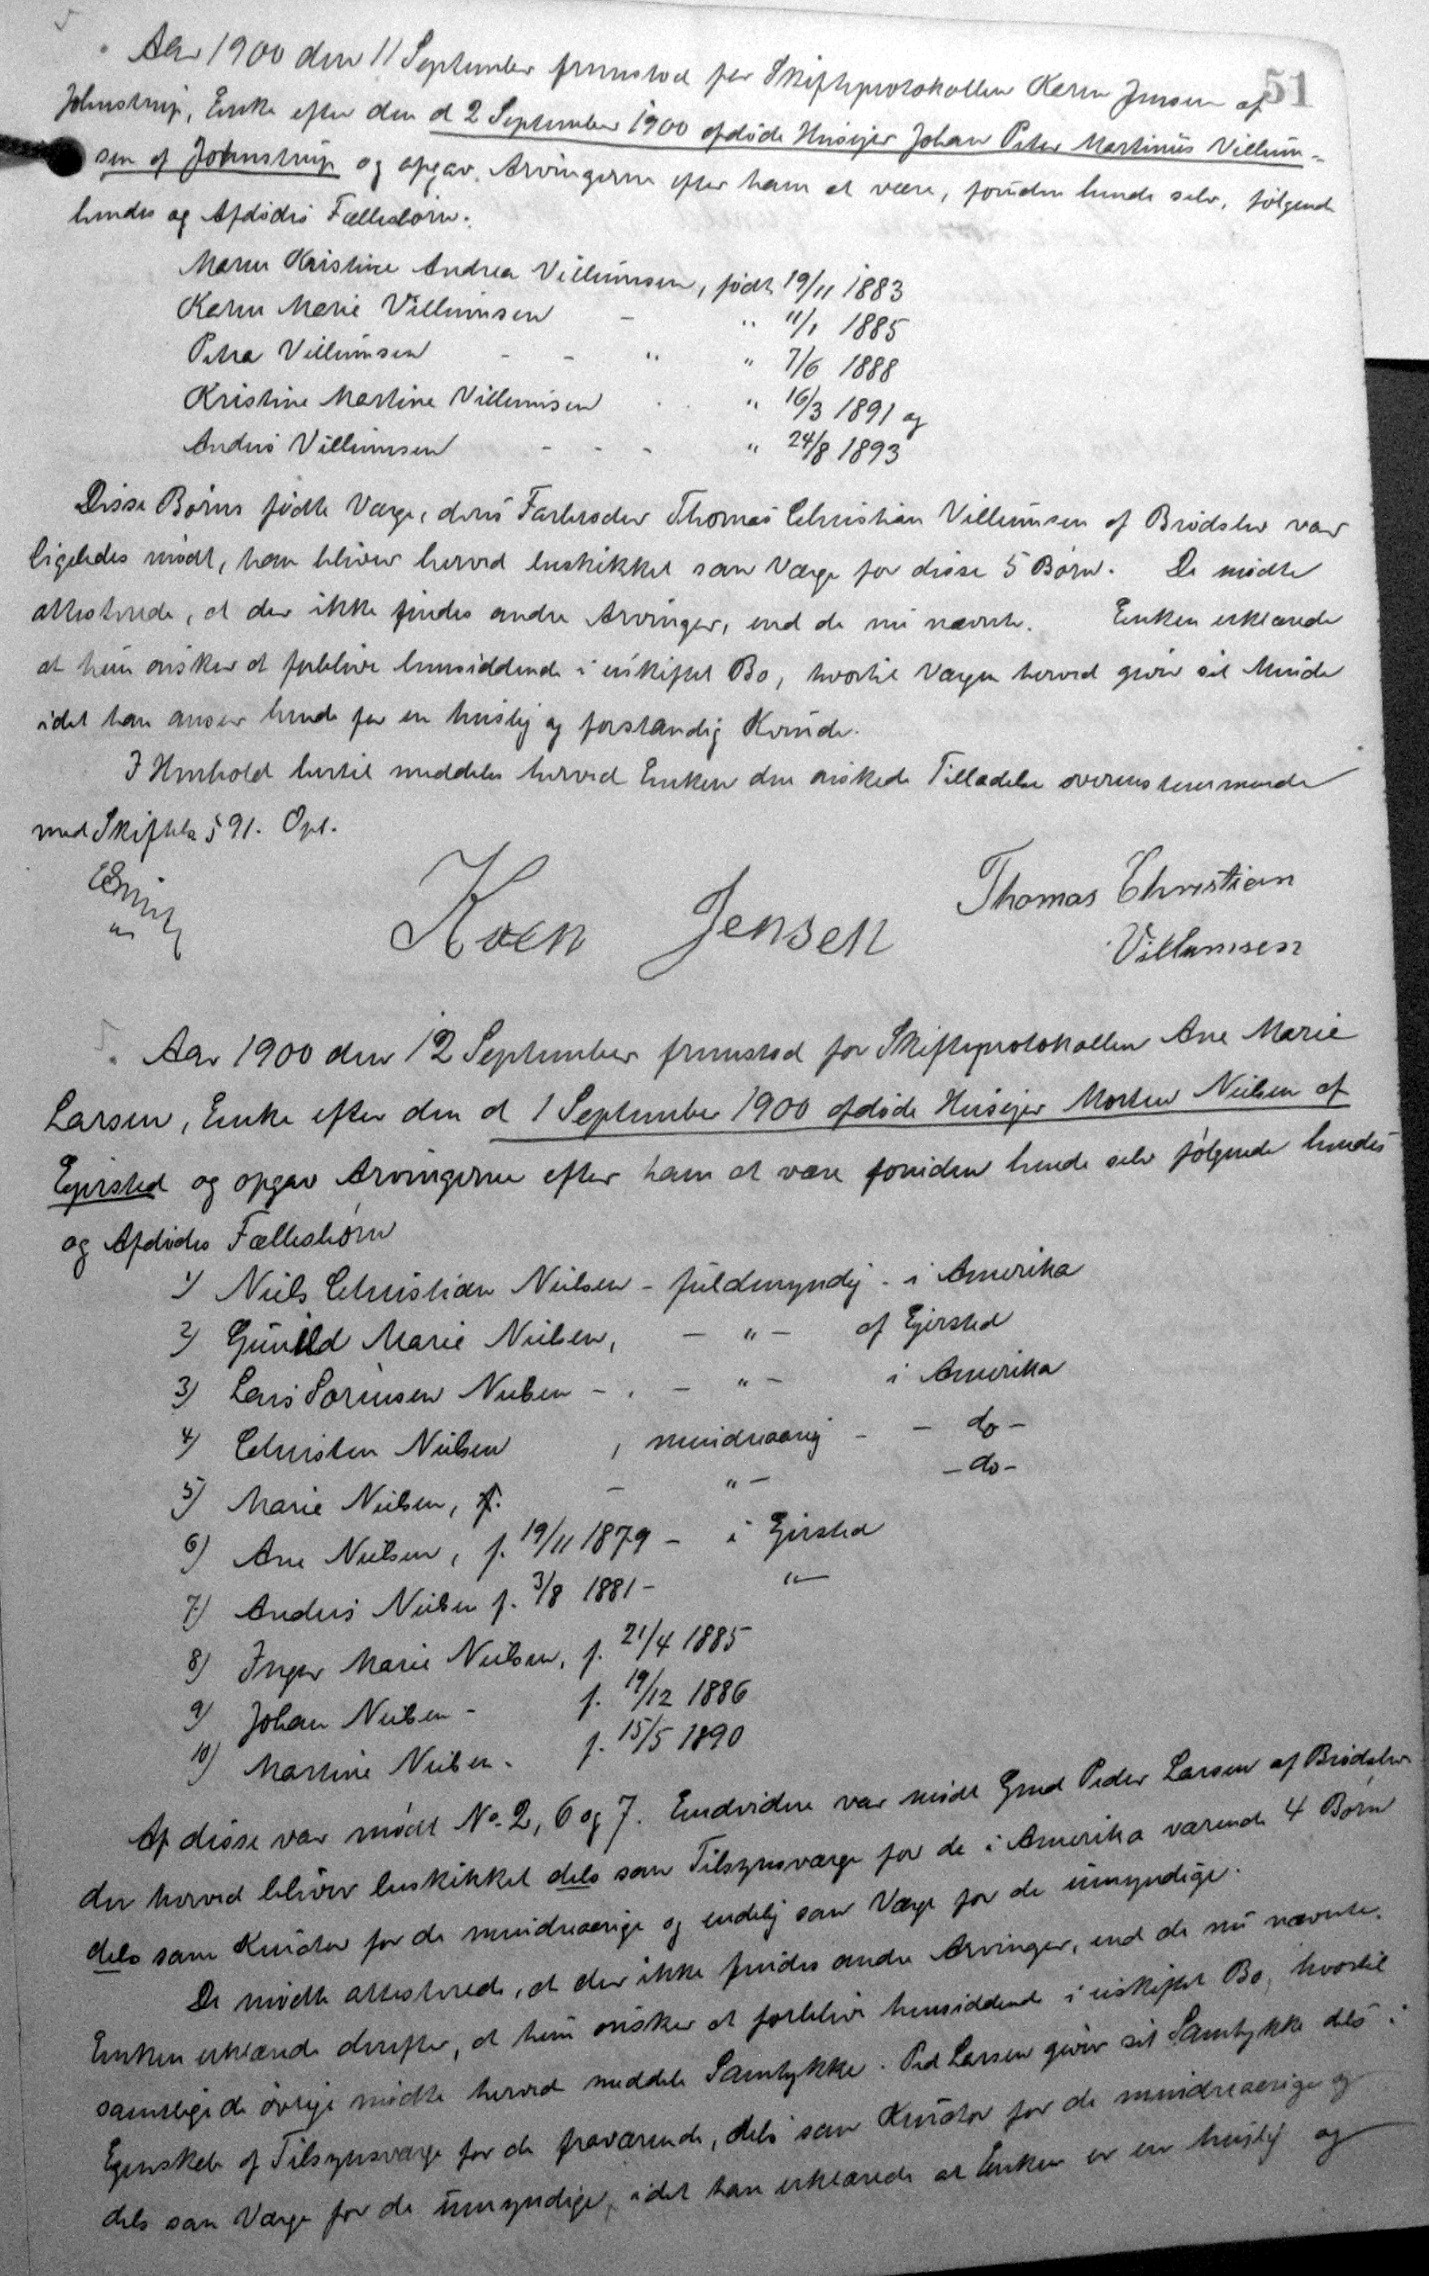 51
Aar 1900 den 11 September fremstod for Skifteprotokollen Karen Jensen af
Johnstrup, Enke efter den d 2 September 1900 afdøde Husejer Johan Peter Martinus Villum-
sen af Johnstrup og opgav Arvingerne efter ham at være, foruden hende selv, følgende
hendes og Afdødes Fællesbørn:
Maren Kristine Andrea Villumsen, født 19/11 1883
Karen Marie Villumsen - " 11/1 1885
Petra Villumsen - - " " 7/6 1888
Kristine Martine Villumsen " 16/3 1891 og
Anders Villumsen - - - " 24/8 1893
Disse Børns fødte Værge, deres Farbroder Thomas Christian Villumsen af Brødslev var
ligeledes mødt, han bliver herved beskikket som Værge for disse 5 Børn. De mødte
attesterede, at der ikke findes andre Arvinger, end de nu nævnte. Enken erklærede
at hun ønsker at forblive hensiddende i uskiftet Bo, hvortil Værgen herved giver sit Minde
idet han anser hende for en huslig og forstandig Kvinde.
I Henhold hertil meddeles herved Enken den ønskede Tilladelse overensstemmende
med Skiftel. § 91. Opl.
Karen Jensen
Thomas Christian
Villumsen
Aar 1900 den 12 September fremstod for Skifteprotokollen Ane Marie
Larsen, Enke efter den d 1 September 1900 afdøde Husejer Morten Nielsen af
Ejersted og opgav Arvingerne efter ham at være foruden hende selv følgende hendes
og Afdødes Fællesbørn
1) Niels Christian Nielsen - fuldmyndig - i Amerika
2) Gunild Marie Nielsen, - " - af Ejersted
3) Lars Sørensen Nielsen - - " - i Amerika
4) Christen Nielsen , mindreaarig - - do -
5) Marie Nielsen, f. - " - - do -
6) Ane Nielsen, f. 19/11 1879 - i Ejersted
7) Anders Nielsen f. 3/8 1881 - "
8) Inger Marie Nielsen, f. 21/4 1885
9) Johan Nielsen - f. 19/12 1886
10) Martine Nielsen - f. 15/5 1890
Af disse var mødt No. 2, 6 og 7. Endvidere var mødt Grmd Peder Larsen af Brødslev
der herved bliver beskikket dels som Tilsynsværge for de i Amerika værende 4 Børn
dels som Kurator for de mindreaarige og endelig som Værge for de umyndige.
De mødte attesterede, at der ikke findes andre Arvinger, end de nu nævnte.
Enken erklærede derefter, at hun ønsker at forblive hensiddende i uskiftet Bo, hvortil
samtlige de øvrige mødte herved meddele Samtykke. Ped Larsen giver sit Samtykke dels i
Egenskab af Tilsynsværge for de fraværende, dels som Kurator for de mindreaarige og
dels som Værge for de umyndige, idet han erklærede at Enken er en huslig og